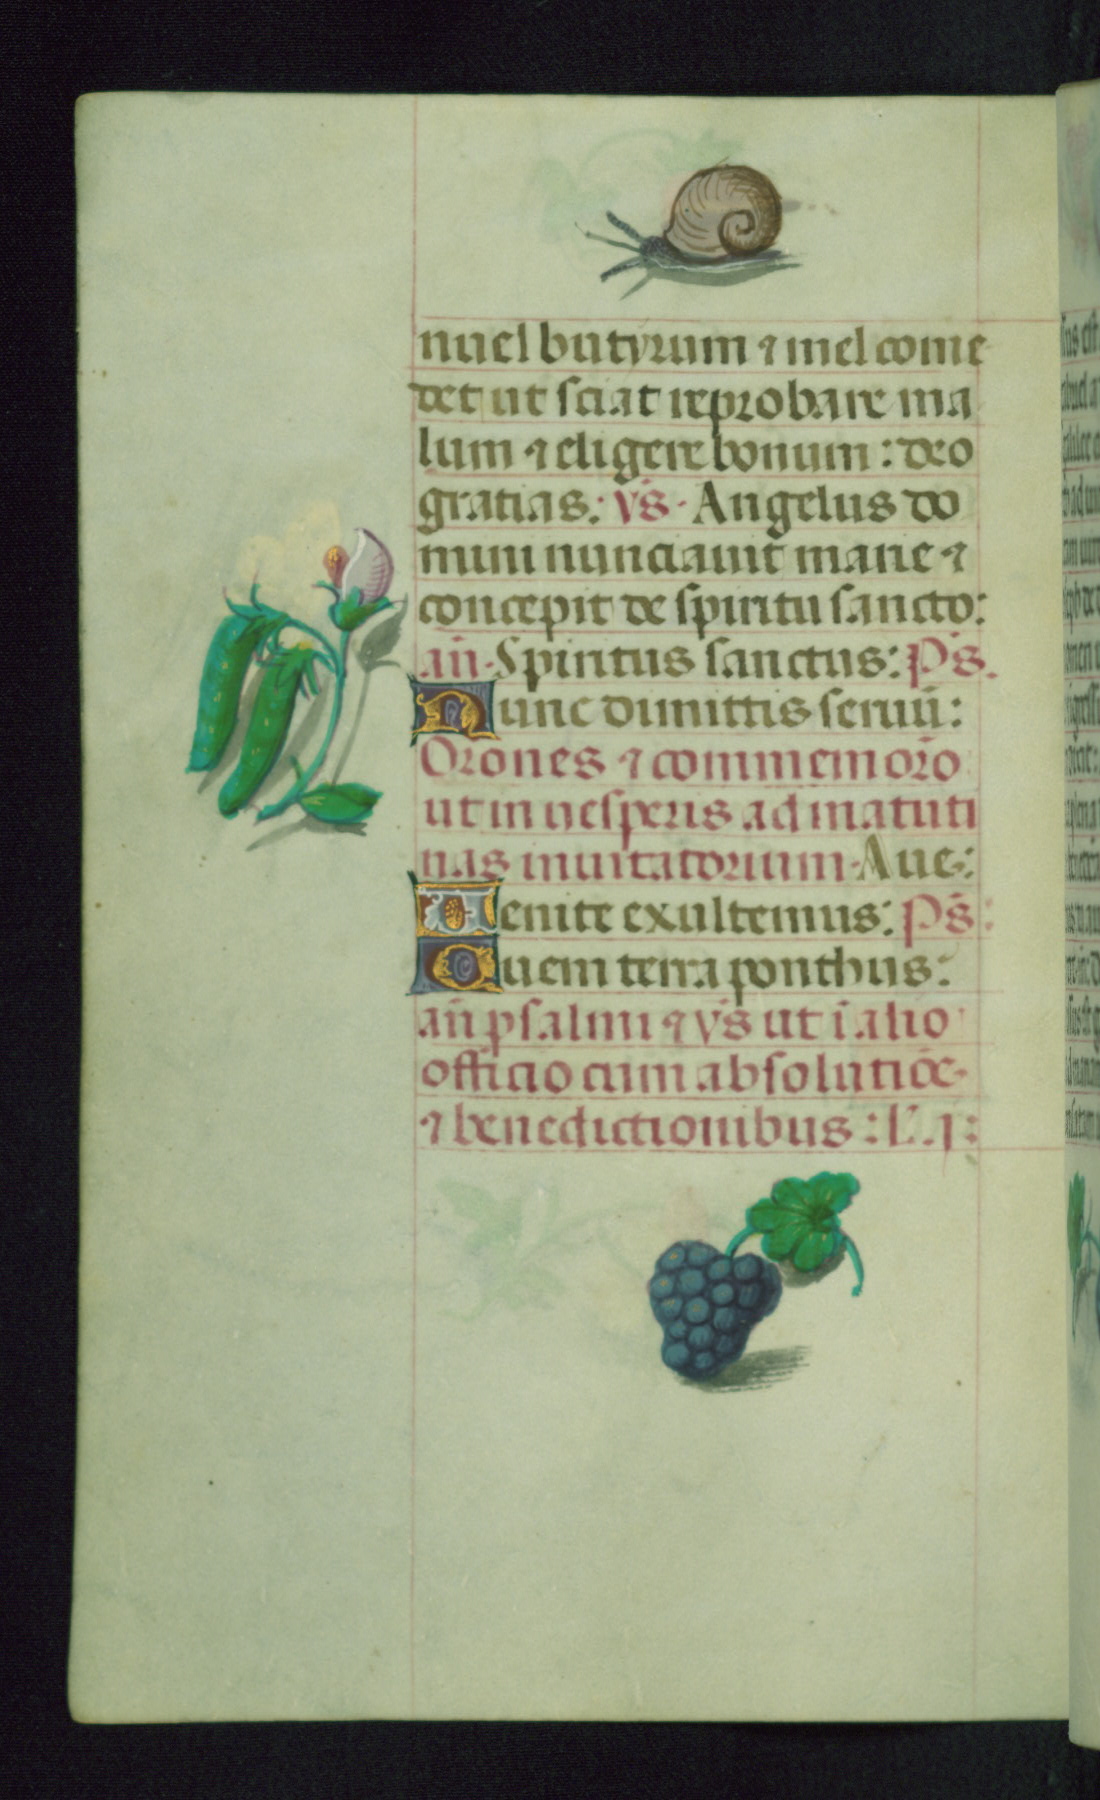 nuel butyrum ⁊ mel come
det ut sciat reprobare ma
lum ⁊ eligere bonum: deo
gratias: vs̄. Angelus do
mini nunciavit marie ⁊
concepit de spiritu sancto:
an̄. Spiritus sanctus: Ps̄.
Nunc dimittis seruū:
Orones ⁊ commemorō
ut in vesperis ad matuti
nas invitatorium. Ave:
Venite exultemus: Ps̄:
Quem terra ponthus:
an̄ psalmi ⁊ vs̄ ut ī alio
officio cum absolutiōe.
⁊ benedictionibus: L'. j: